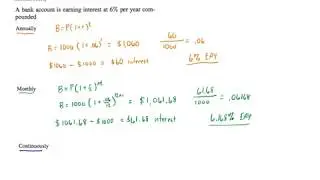 A bank account is earning interest at 6% per year com-
pounded
Annually
B=P(1+r)^t
B=1000(1+.06)^1 = $1,060
$1060 - $1000 = $60 interest
60/1000 = .06
6% EAY
Monthly
B=P(1+r/n)^nt
B=1000(1+.06/12)^12×1 = $1,061.68
$1061.68 - $1000 = $61.68 interest
61.68/1000 = .06168
6.168% EAY
Continuously